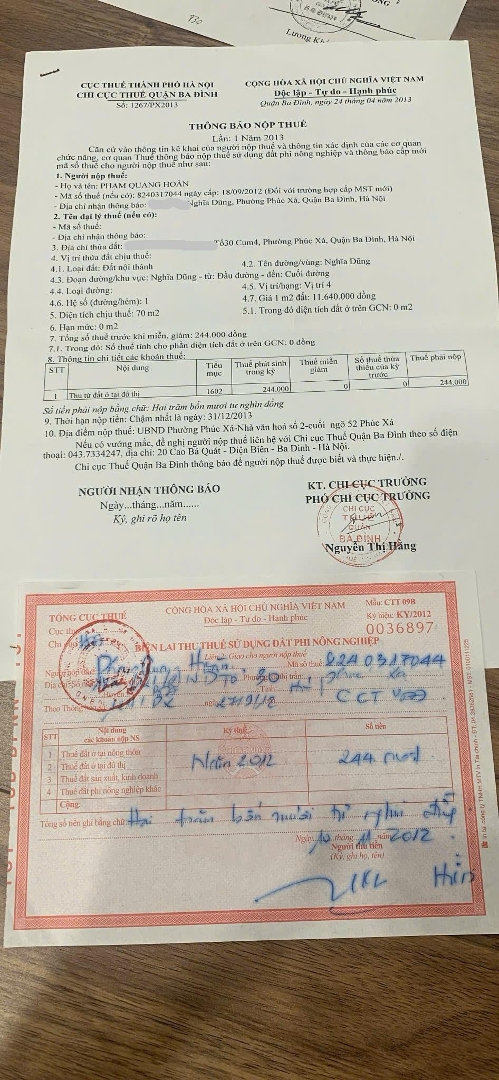 Lương Kh
CỤC THUẾ THÀNH PHỐ HÀ NỘI
CHI CỤC THUẾ QUẬN BA ĐÌNH
Số: 1267/PX2013
CỘNG HÒA XÃ HỘI CHỦ NGHĨA VIỆT NAM
Độc lập - Tự do - Hạnh phúc
Quận Ba Đình, ngày 24 tháng 04 năm 2013
THÔNG BÁO NỘP THUẾ
Lần: 1 Năm 2013
Căn cứ vào thông tin kê khai của người nộp thuế và thông tin xác định của các cơ quan
chức năng, cơ quan Thuế thông báo nộp thuế sử dụng đất phi nông nghiệp và thông báo cấp mới
mã số thuế cho người nộp thuế như sau:
1. Người nộp thuế:
- Họ và tên: PHẠM QUANG HOÀN
- Mã số thuế (nếu có): 8240317044 ngày cấp: 18/09/2012 (Đối với trường hợp cấp MST mới)
- Địa chỉ nhận thông báo: Nghĩa Dũng, Phường Phúc Xá, Quận Ba Đình, Hà Nội
2. Tên đại lý thuế (nếu có):
- Mã số thuế:
- Địa chỉ nhận thông báo:
3. Địa chỉ thửa đất: Tổ30 Cum4, Phường Phúc Xá, Quận Ba Đình, Hà Nội
4. Vị trí thửa đất chịu thuế:
4.1. Loại đất: Đất nội thành
4.2. Tên đường/vùng: Nghĩa Dũng
4.3. Đoạn đường/khu vực: Nghĩa Dũng - từ: Đầu đường - đến: Cuối đường
4.4. Loại đường:
4.5. Vị trí/hạng: Vị trí 4
4.6. Hệ số (đường/hẻm): 1
4.7. Giá 1 m2 đất: 11.640.000 đồng
5. Diện tích chịu thuế: 70 m2
5.1. Trong đó diện tích đất ở trên GCN: 0 m2
6. Hạn mức: 0 m2
7. Tổng số thuế trước khi miễn, giảm: 244.000 đồng
7.1. Trong đó: Số thuế tính cho phần diện tích đất ở trên GCN: 0 đồng
8. Thông tin chi tiết các khoản thuế:
STT Nội dung Tiểu mục Thuế phát sinh trong kỳ Thuế miễn giảm Số thuế thừa thiếu của kỳ trước Thuế phải nộp
1 Thu từ đất ở tại đô thị 1602 244.000 0 0 244.000
Số tiền phải nộp bằng chữ: Hai trăm bốn mươi tư nghìn đồng
9. Thời hạn nộp tiền: Chậm nhất là ngày: 31/12/2013
10. Địa điểm nộp thuế: UBND Phường Phúc Xá-Nhà văn hoá số 2-cuối ngõ 52 Phúc Xá
Nếu có vướng mắc, đề nghị người nộp thuế liên hệ với Chi cục Thuế Quận Ba Đình theo số điện
thoại: 043.7334247, địa chỉ: 20 Cao Bá Quát - Điện Biên - Ba Đình - Hà Nội.
Chi cục Thuế Quận Ba Đình thông báo để người nộp thuế được biết và thực hiện./.
NGƯỜI NHẬN THÔNG BÁO
Ngày...tháng...năm......
Ký, ghi rõ họ tên
KT. CHI CỤC TRƯỞNG
PHÓ CHI CỤC TRƯỞNG
CHI CỤC
THUẾ
QUẬN
BA ĐÌNH
Nguyễn Thị Hằng
TỔNG CỤC THUẾ
Cục thuế
CỘNG HÒA XÃ HỘI CHỦ NGHĨA VIỆT NAM
Độc lập - Tự do - Hạnh phúc
Mẫu: CTT 09B
Ký hiệu: KY/2012
0036897
BIÊN LAI THU THUẾ SỬ DỤNG ĐẤT PHI NÔNG NGHIỆP
Giao cho người nộp thuế
Mã số thuế 8240317044
STT Nội dung các khoản nộp NS Kỳ thuế Số tiền
1 Thuế đất ở tại nông thôn
2 Thuế đất ở tại đô thị Năm 2012 244
3 Thuế đất sản xuất, kinh doanh
4 Thuế đất phi nông nghiệp khác
Cộng:
Tổng số tiền ghi bằng chữ: Hai trăm bốn mươi tư nghìn đồng
Ngày 10 tháng 11 năm 2012
Người thu tiền
(Ký, ghi họ, tên)